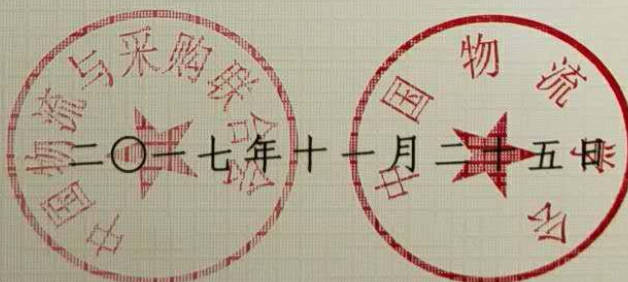 中国物流与采购联合会
中国物流学会
二〇一七年十一月二十五日